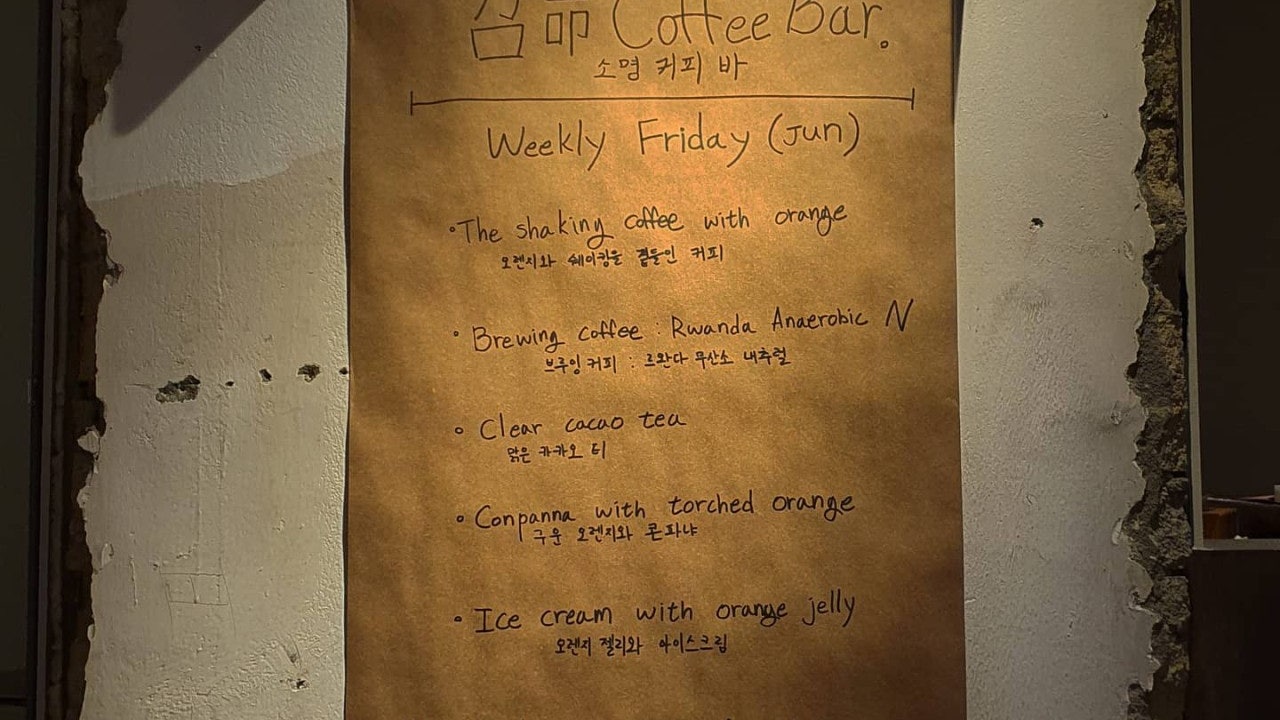 召命 Coffee Bar.
소명 커피 바
Weekly Friday (Jun)
The shaking coffee with orange
오렌지와 쉐이킹을 곁들인 커피
Brewing coffee : Rwanda Anaerobic N
브루잉 커피 : 르완다 무산소 내추럴
Clear cacao tea
맑은 카카오 티
Conpanna with torched orange
구운 오렌지와 콘파냐
Ice cream with orange jelly
오렌지 젤리와 아이스크림